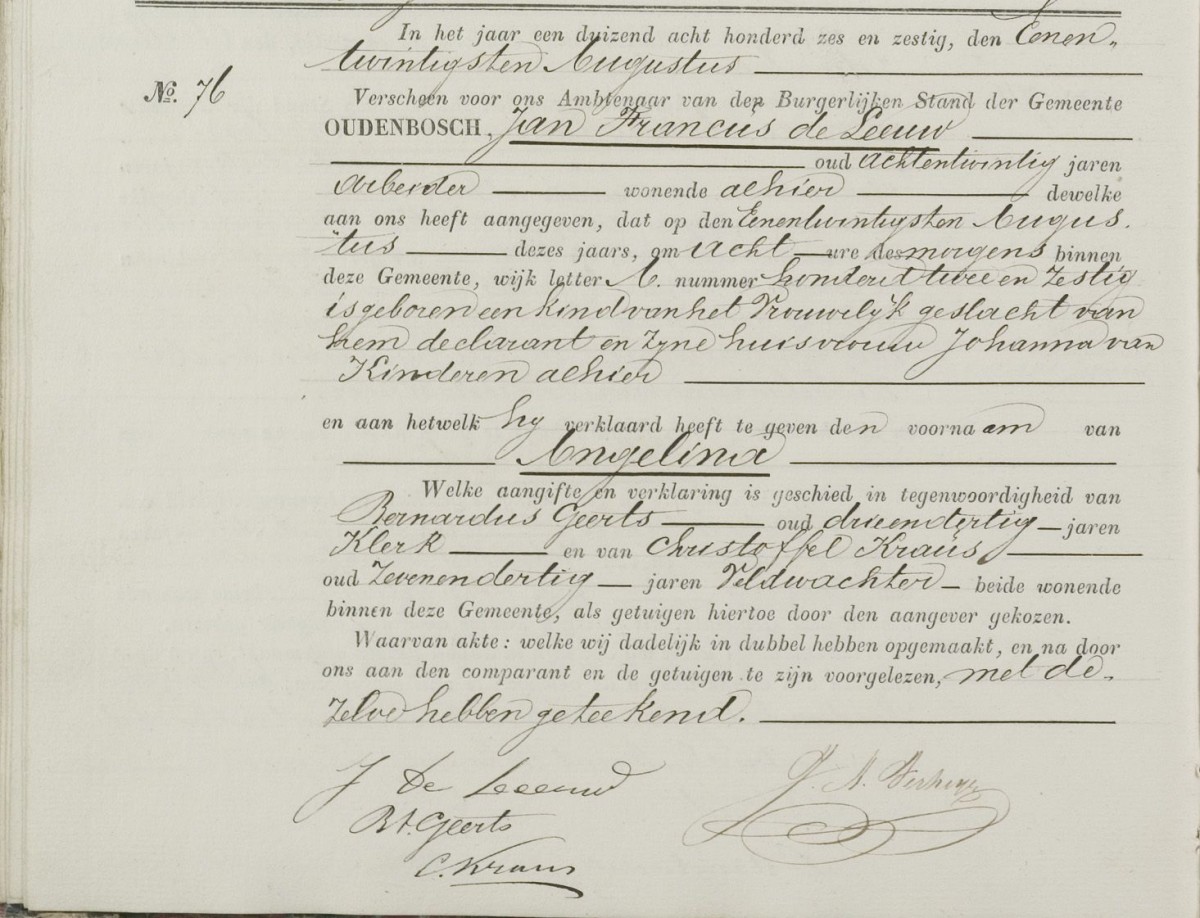 In het jaar een duizend acht honderd zes en zestig, den Eenen-
twintigsten Augustus
No. 76
Verscheen voor ons Ambtenaar van den Burgerlijken Stand der Gemeente
OUDENBOSCH, Jan Francus de Leeuw
oud achtentwintig jaren
arbeider wonende alhier dewelke
aan ons heeft aangegeven, dat op den Eenentwintigsten Augus.
tus dezes jaars, om acht ure des morgens binnen
deze Gemeente, wijk letter A. nummer honderd twee en zestig
is geboren een kind van het Vrouwelijk geslacht van
hem declarant en zyne huisvrouw Johanna van
Kinderen alhier
en aan hetwelk hy verklaard heeft te geven den voornaam van
Angelina
Welke aangifte en verklaring is geschied in tegenwoordigheid van
Bernardus Geerts oud drieendertig jaren
Klerk en van Christoffel Kraüs
oud Zevenendertig jaren Veldwachter beide wonende
binnen deze Gemeente, als getuigen hiertoe door den aangever gekozen.
Waarvan akte: welke wij dadelijk in dubbel hebben opgemaakt, en na door
ons aan den comparant en de getuigen te zijn voorgelezen, met de-
zelve hebben geteekend.
J De Leeuw
Bt. Geerts
C. Kraus